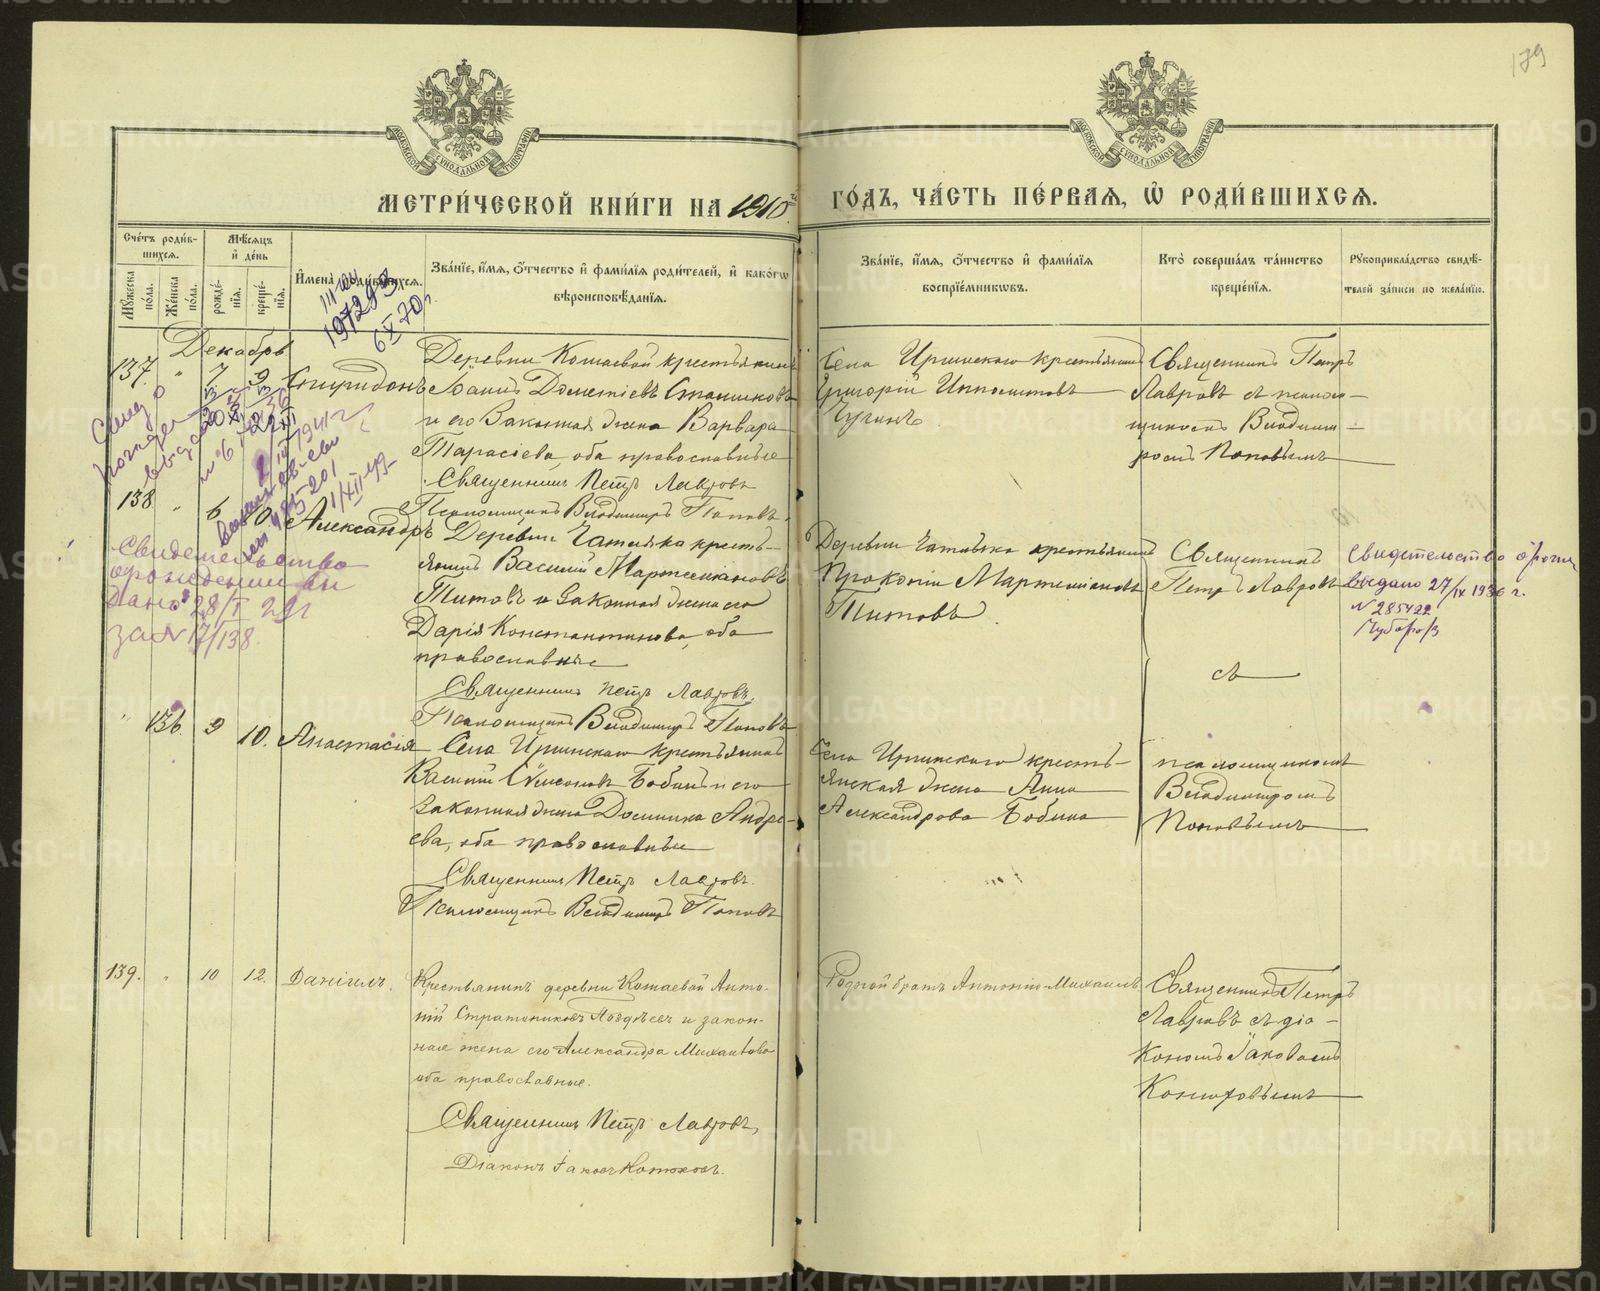 179
МЕТРИ́ЧЕСКОЙ КНИ́ГИ НА 1910 ГО́ДЪ, ЧА́СТЬ ПЕ́РВАЯ, Ѡ РОДИ́ВШИХСЯ.
Сче́тъ роди́вшихся.
Му́жеска по́ла.
Же́нска по́ла.
Мѣ́сяцъ и де́нь
рожде́нїя.
креще́нїя.
Имена̀ роди́вшихся.
Зва́нїе, и́мя, о́тчество и фами́лїя роди́телей, и како́гѡ вѣроисповѣ́данїя.
Зва́нїе, и́мя, о́тчество и фами́лїя воспрїе́мниковъ.
Кто̀ соверша́лъ та́инство креще́нїя.
Рукоприкла́дство свидѣ́телей за́писи по жела́нїю.
Декабрь
137. " 7 9 Спиридонъ
Деревни Кошаевой крестьянинъ
Іоаннъ Дометіевъ Станиковъ
и его Законная жена Варвара
Тарасіева, оба православные
Священникъ Петръ Лавровъ
Псаломщикъ Владимиръ Поповъ.
Села Иргинскаго крестьянинъ
Григорій Ипполитовъ
Чугинъ
Священникъ Петръ
Лавровъ съ псалом-
щикомъ Владими-
ромъ Поповымъ
138 " 6 Александръ
Деревни крестья-
янинъ Василій Мартеміановъ
Титовъ и Законная жена его
Дарія Константинова, оба
православные
Священникъ Петръ Лавровъ.
Псаломщикъ Владимиръ Поповъ
Деревни крестьянинъ
Прокопій Мартеміановъ
Титовъ.
Священникъ
Петръ Лавровъ
съ
Свидетельство
о рождении вы
дано 28/I
за № 17/138.
Свидетельство о рожд
выдано 27/IX 1936 г.
N 285422
" 136. 9 10. Анастасія
Села Иргинскаго крестьянинъ
Василій Симеоновъ Бобинъ и его
Законная жена Домника Андре-
ева, оба православные
Священникъ Петръ Лавровъ.
Псаломщикъ Владимиръ Поповъ
Села Иргинскаго кресть-
янская жена Анна
Александрова Бобина
псаломщикомъ
Владимиромъ
Поповымъ
139. " 10 12. Даніилъ.
Крестьянинъ деревни Кошаевой Анто-
ній Стратониковъ Поздѣевъ и закон-
ная жена его Александра Михаилова
оба православные.
Священникъ Петръ Лавровъ,
Діаконъ Іаковъ Конюховъ.
Родной братъ Антонію Михаилъ
Священникъ Петръ
Лавровъ съ діа-
кономъ Іаковомъ
Конюховымъ